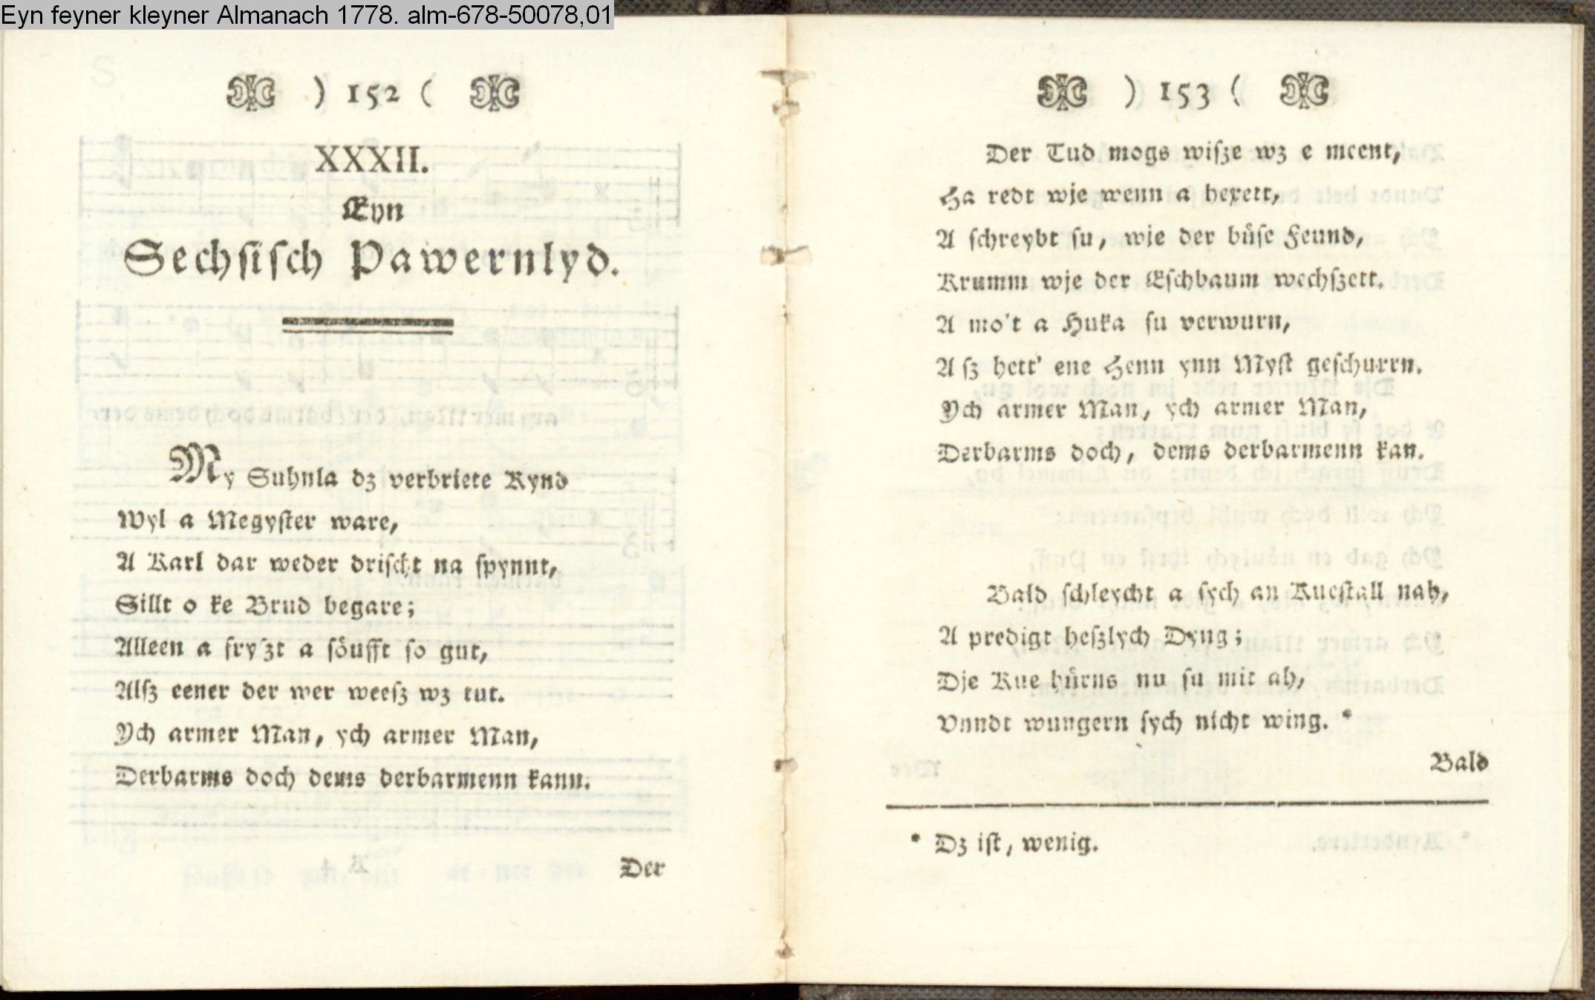 Eyn feyner kleyner Almanach 1778. alm-678-50078,01
) 152 (
XXXII.
Eyn
Sechsisch Pawernlyd.
My Suhnla dz verbriete Kynd
Wyl a Megyster ware,
A Karl dar weder drischt na spynnt,
Sillt o ke Brud begare;
Alleen a fryszt a söufft so gut,
Alsz eener der wer weesz wz tut.
Ych armer Man, ych armer Man,
Derbarms doch dems derbarmenn kann.
Der
) 153 (
Der Tud mogs wisze wz e meent,
Ha redt wje wenn a hexett,
A schreybt su, wie der büse Feund,
Krumm wje der Eschbaum wechszett.
A mo't a Huka su verwurn,
A sz hett' ene Henn ynn Myst geschurrn.
Ych armer Man, ych armer Man,
Derbarms doch, dems derbarmenn kan.
Bald schleycht a sych an Kuestall nah,
A predigt heszlych Dyng;
Dje Kue hürns nu su mit ah,
Vnndt wungern sych nicht wing. *
Bald
* Dz ist, wenig.